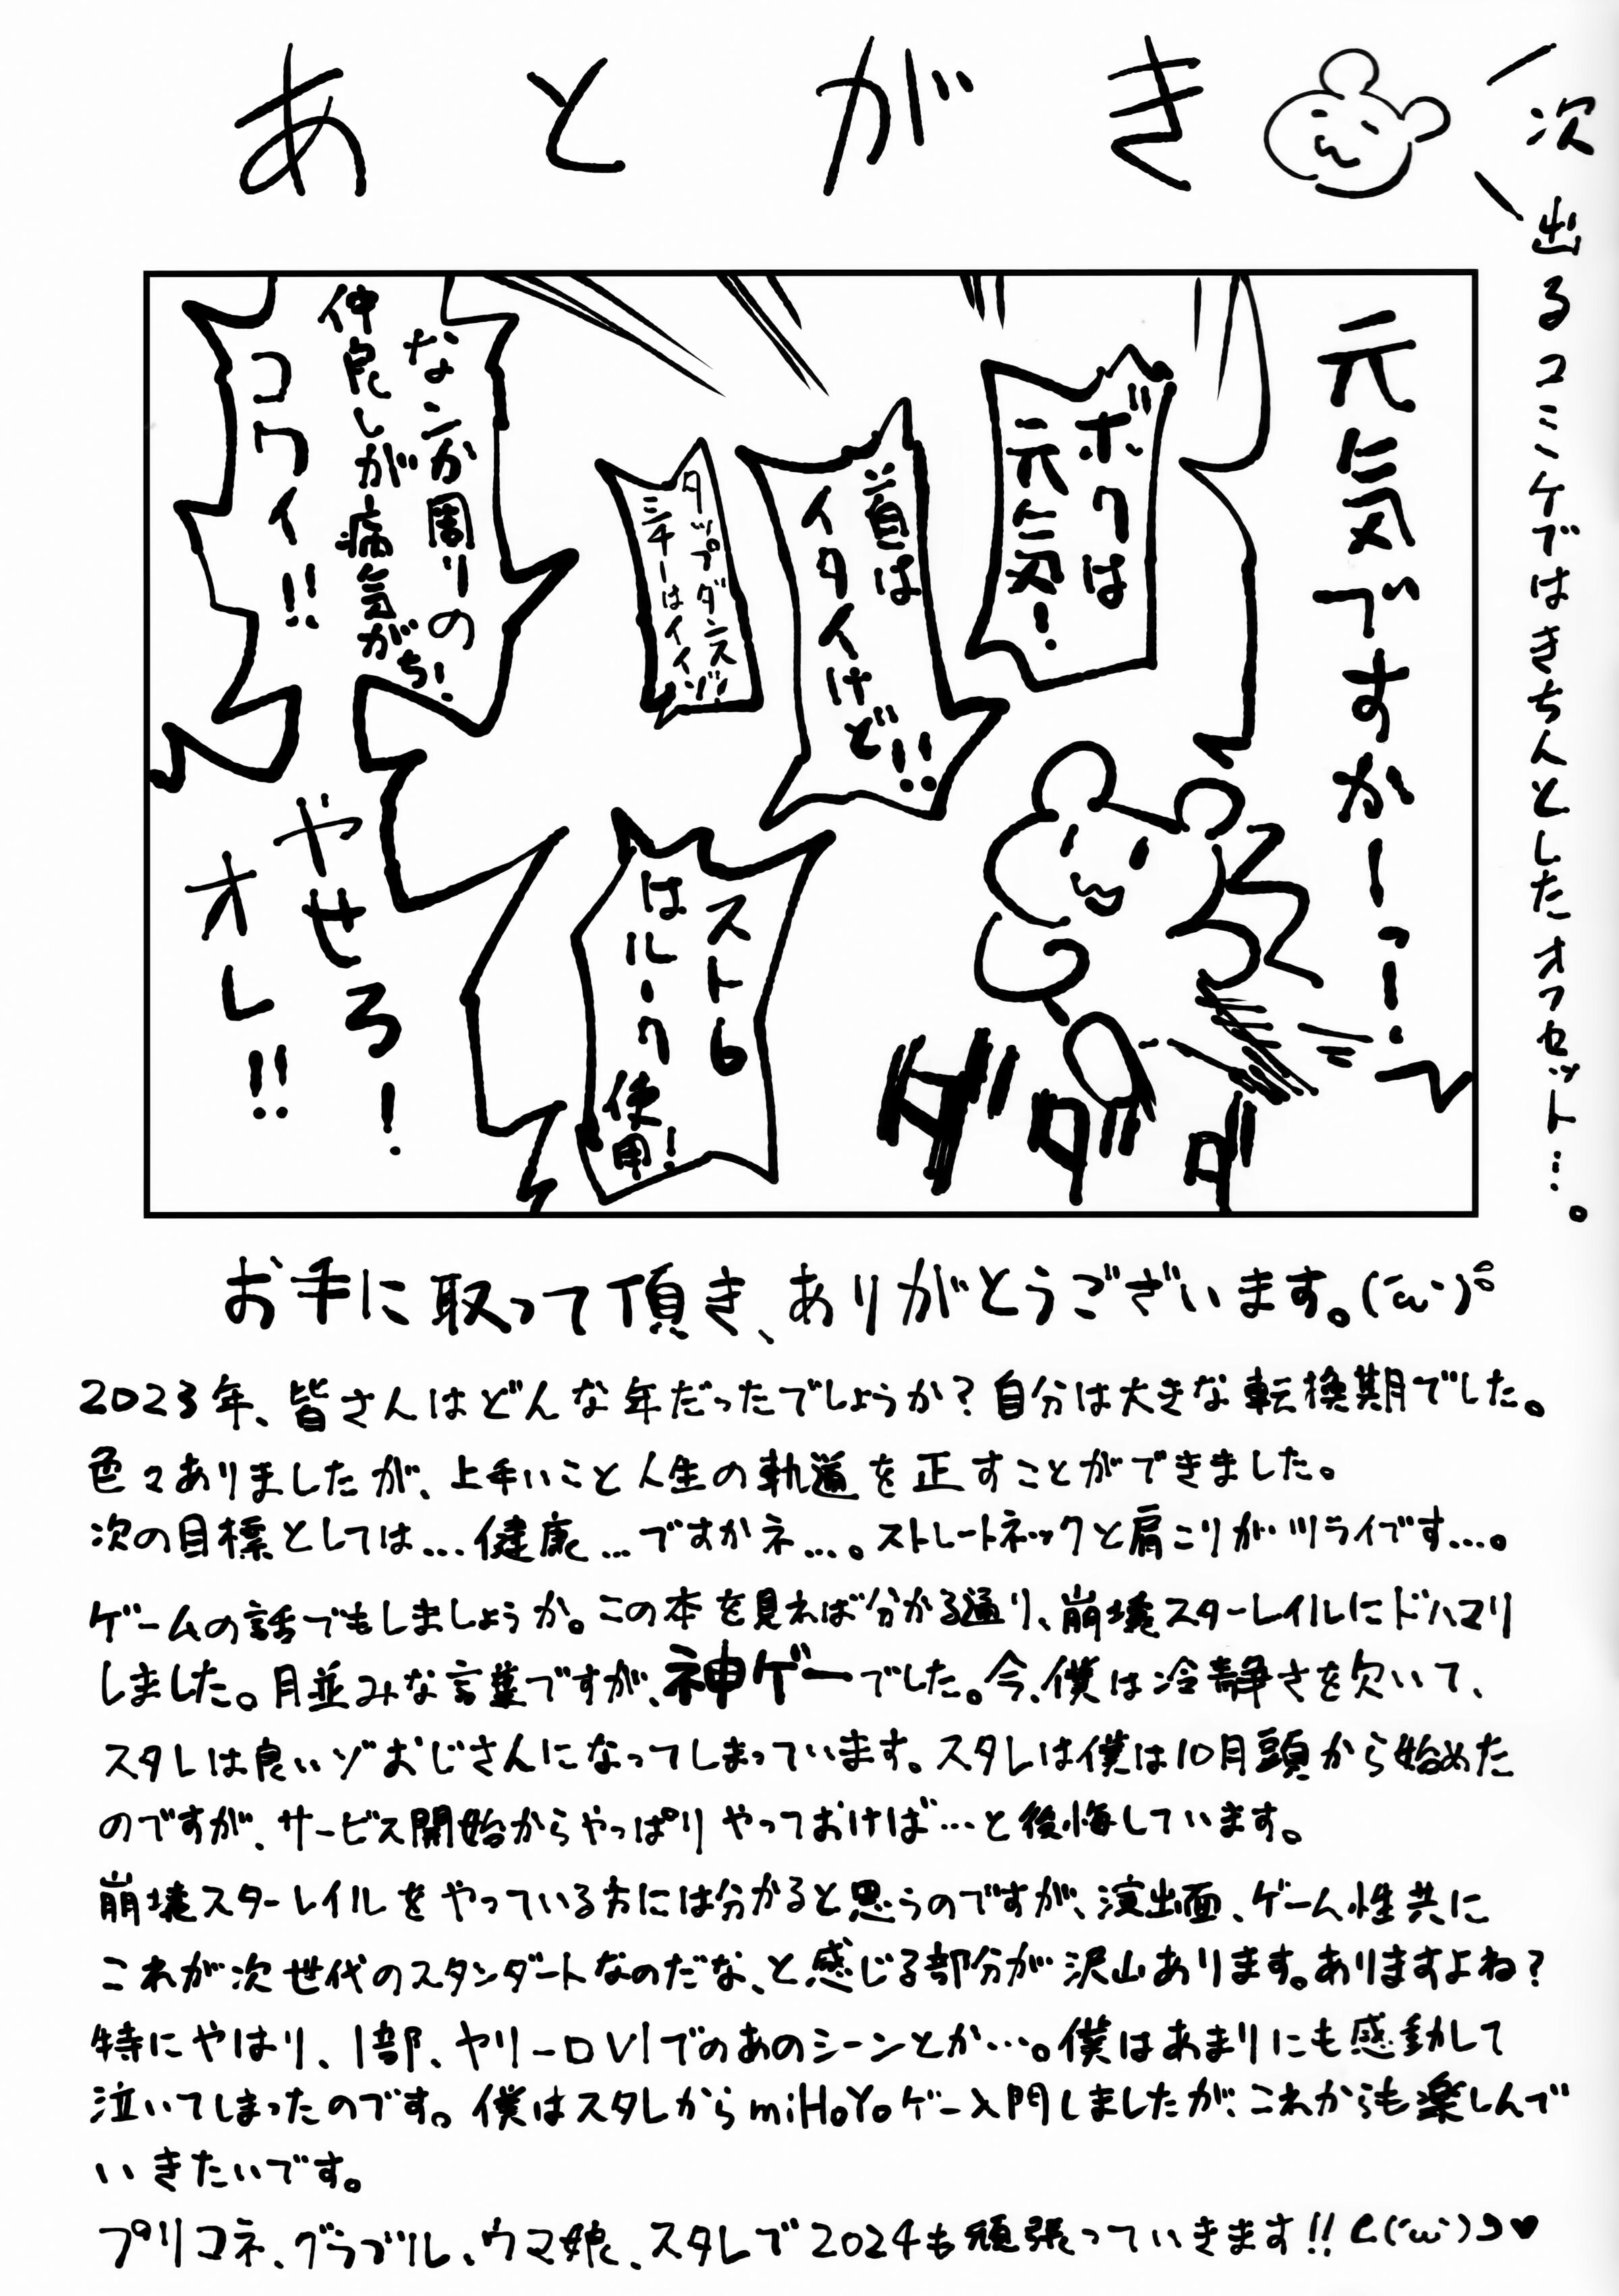 あとがき
次出るコミケではきちんとしたオフセット…。
元気ですかーっ!
ボクは
元気!
首は
イタイけど!!
タップダンスッ!
シチーはイイゾ
なンか周りの!
仲良しが病気がち!
コワイ!!
スト6
はルーク
使用!
ダダダ
やせろ!
オレ!!
お手に取って頂き、ありがとうございます。(´ω`)°
2023年、皆さんはどんな年だったでしょうか?自分は大きな転換期でした。
色々ありましたが、上手いこと人生の軌道を正すことができました。
次の目標としては…健康…ですかネ…。ストレートネックと肩こりがツライです…。
ゲームの話でもしましょうか。この本を見れば分かる通り、崩壊スターレイルにドハマリ
しました。月並みな言葉ですが、神ゲーでした。今、僕は冷静さを欠いて、
スタレは良いゾおじさんになってしまっています。スタレは僕は10月頭から始めた
のですが、サービス開始からやっぱりやっておけば…と後悔しています。
崩壊スターレイルをやっている方には分かると思うのですが、演出面、ゲーム性共に
これが次世代のスタンダートなのだな、と感じる部分が沢山あります。ありますよね?
特にやはり、1部、ヤリーロVIでのあのシーンとか…。僕はあまりにも感動して
泣いてしまったのです。僕はスタレからmiHoYoゲー入門しましたが、これからも楽しんで
いきたいです。
プリコネ、グラブル、ウマ娘、スタレで2024も頑張っていきます!!⊂(´ω`)⊃♥